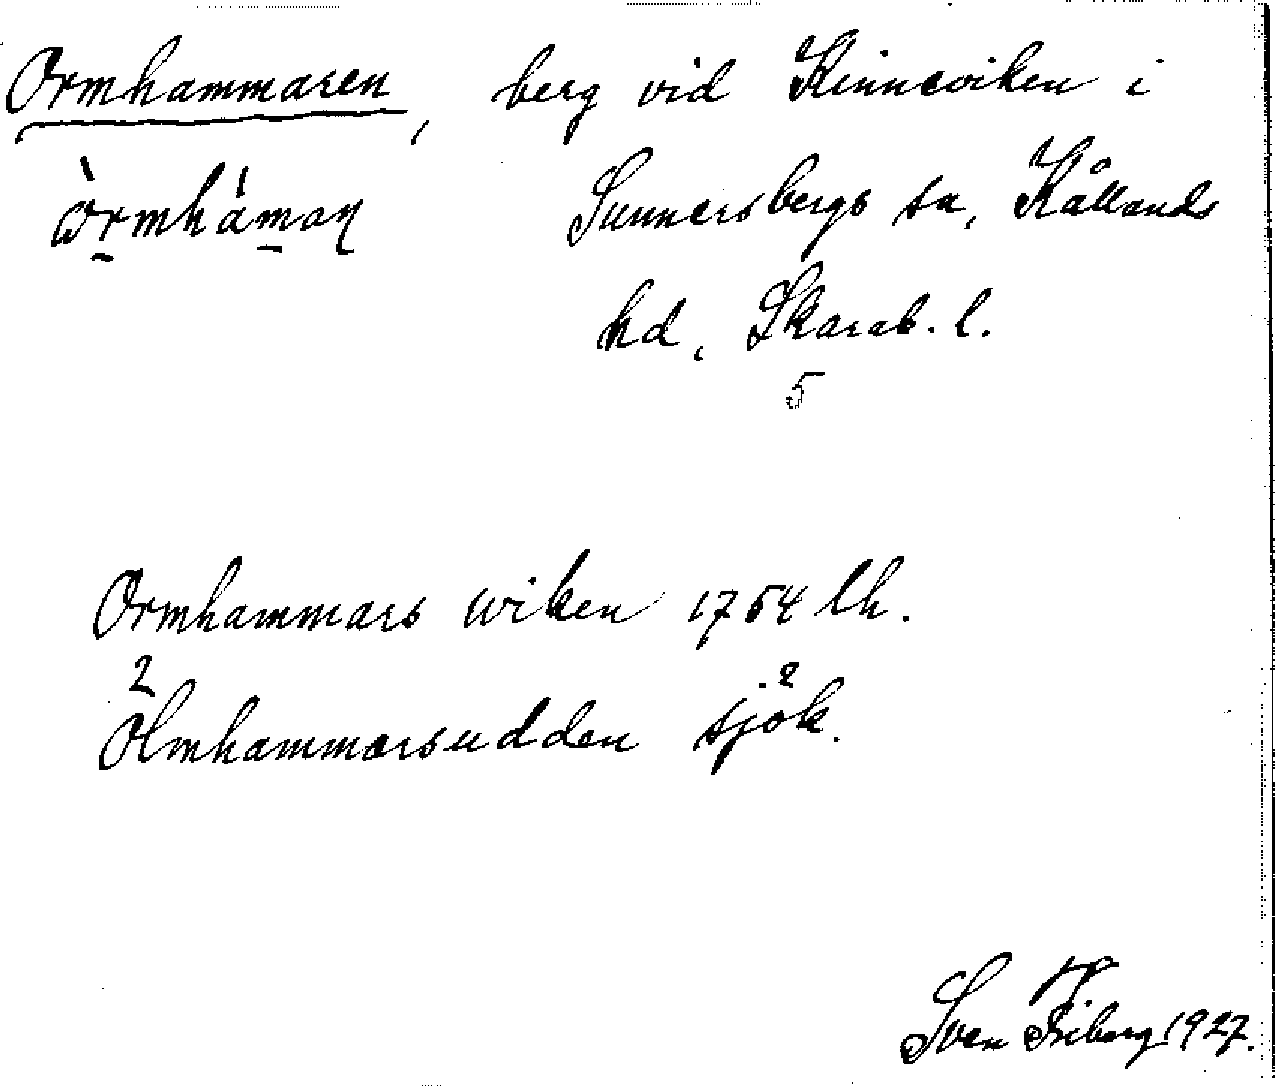 Ormhammaren, berg vid Kinneviken i
Sunnersbergs sn, Kållands
hd, Skarab. l.
5
Ormhammars wiken 1754 lh.
Ölmhammarsudden sjök.
Sven Friberg 1927.